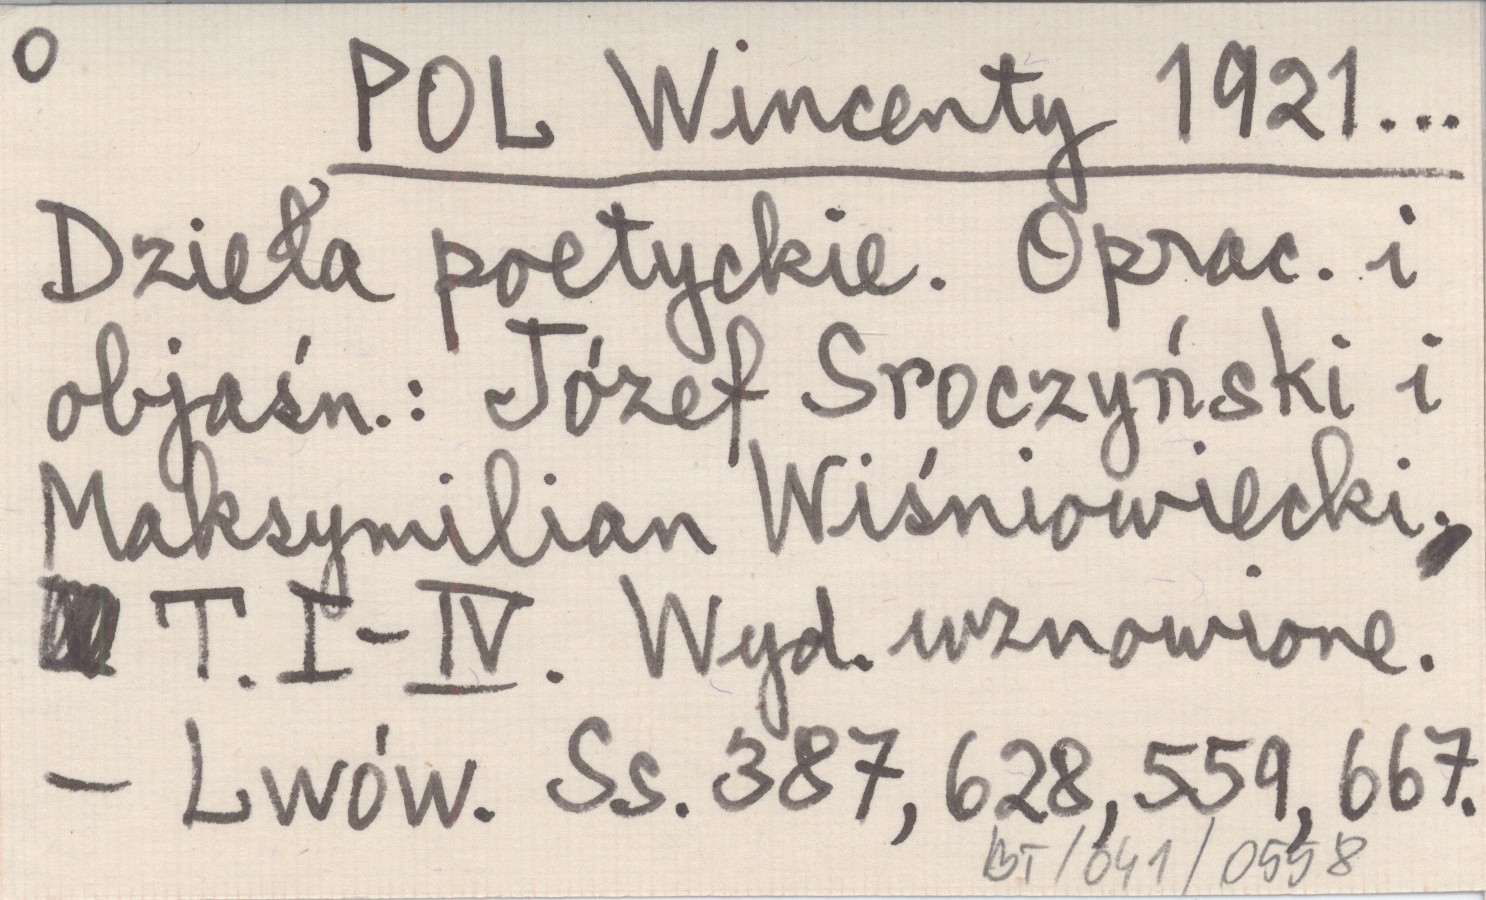 O
POL Wincenty 1921...
Dzieła poetyckie. Oprac. i
objaśn.: Józef Sroczyński i
Maksymilian Wiśniowiecki.
T. I-IV. Wyd. wznowione.
- Lwów. Ss. 387, 628, 559, 667.
BT/041/0558